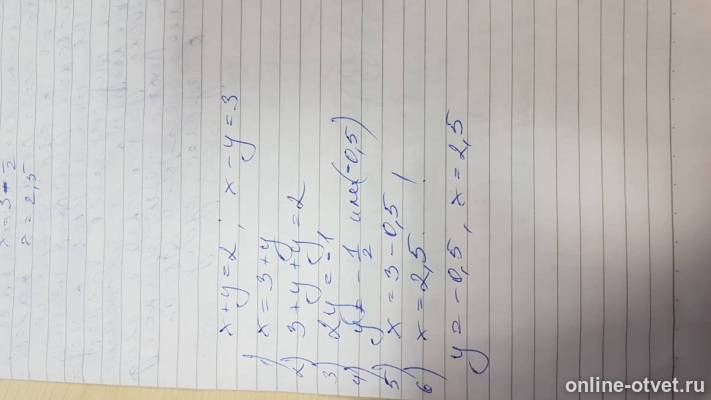 x = 3 - 1/2
x = 2,5
x+y=2, x-y=3
1) x = 3+y
2) 3+y+y=2
3) 2y = -1
4) y = -1/2 или (-0,5)
5) x = 3-0,5
6) x = 2,5
y = -0,5, x = 2,5
online-otvet.ru